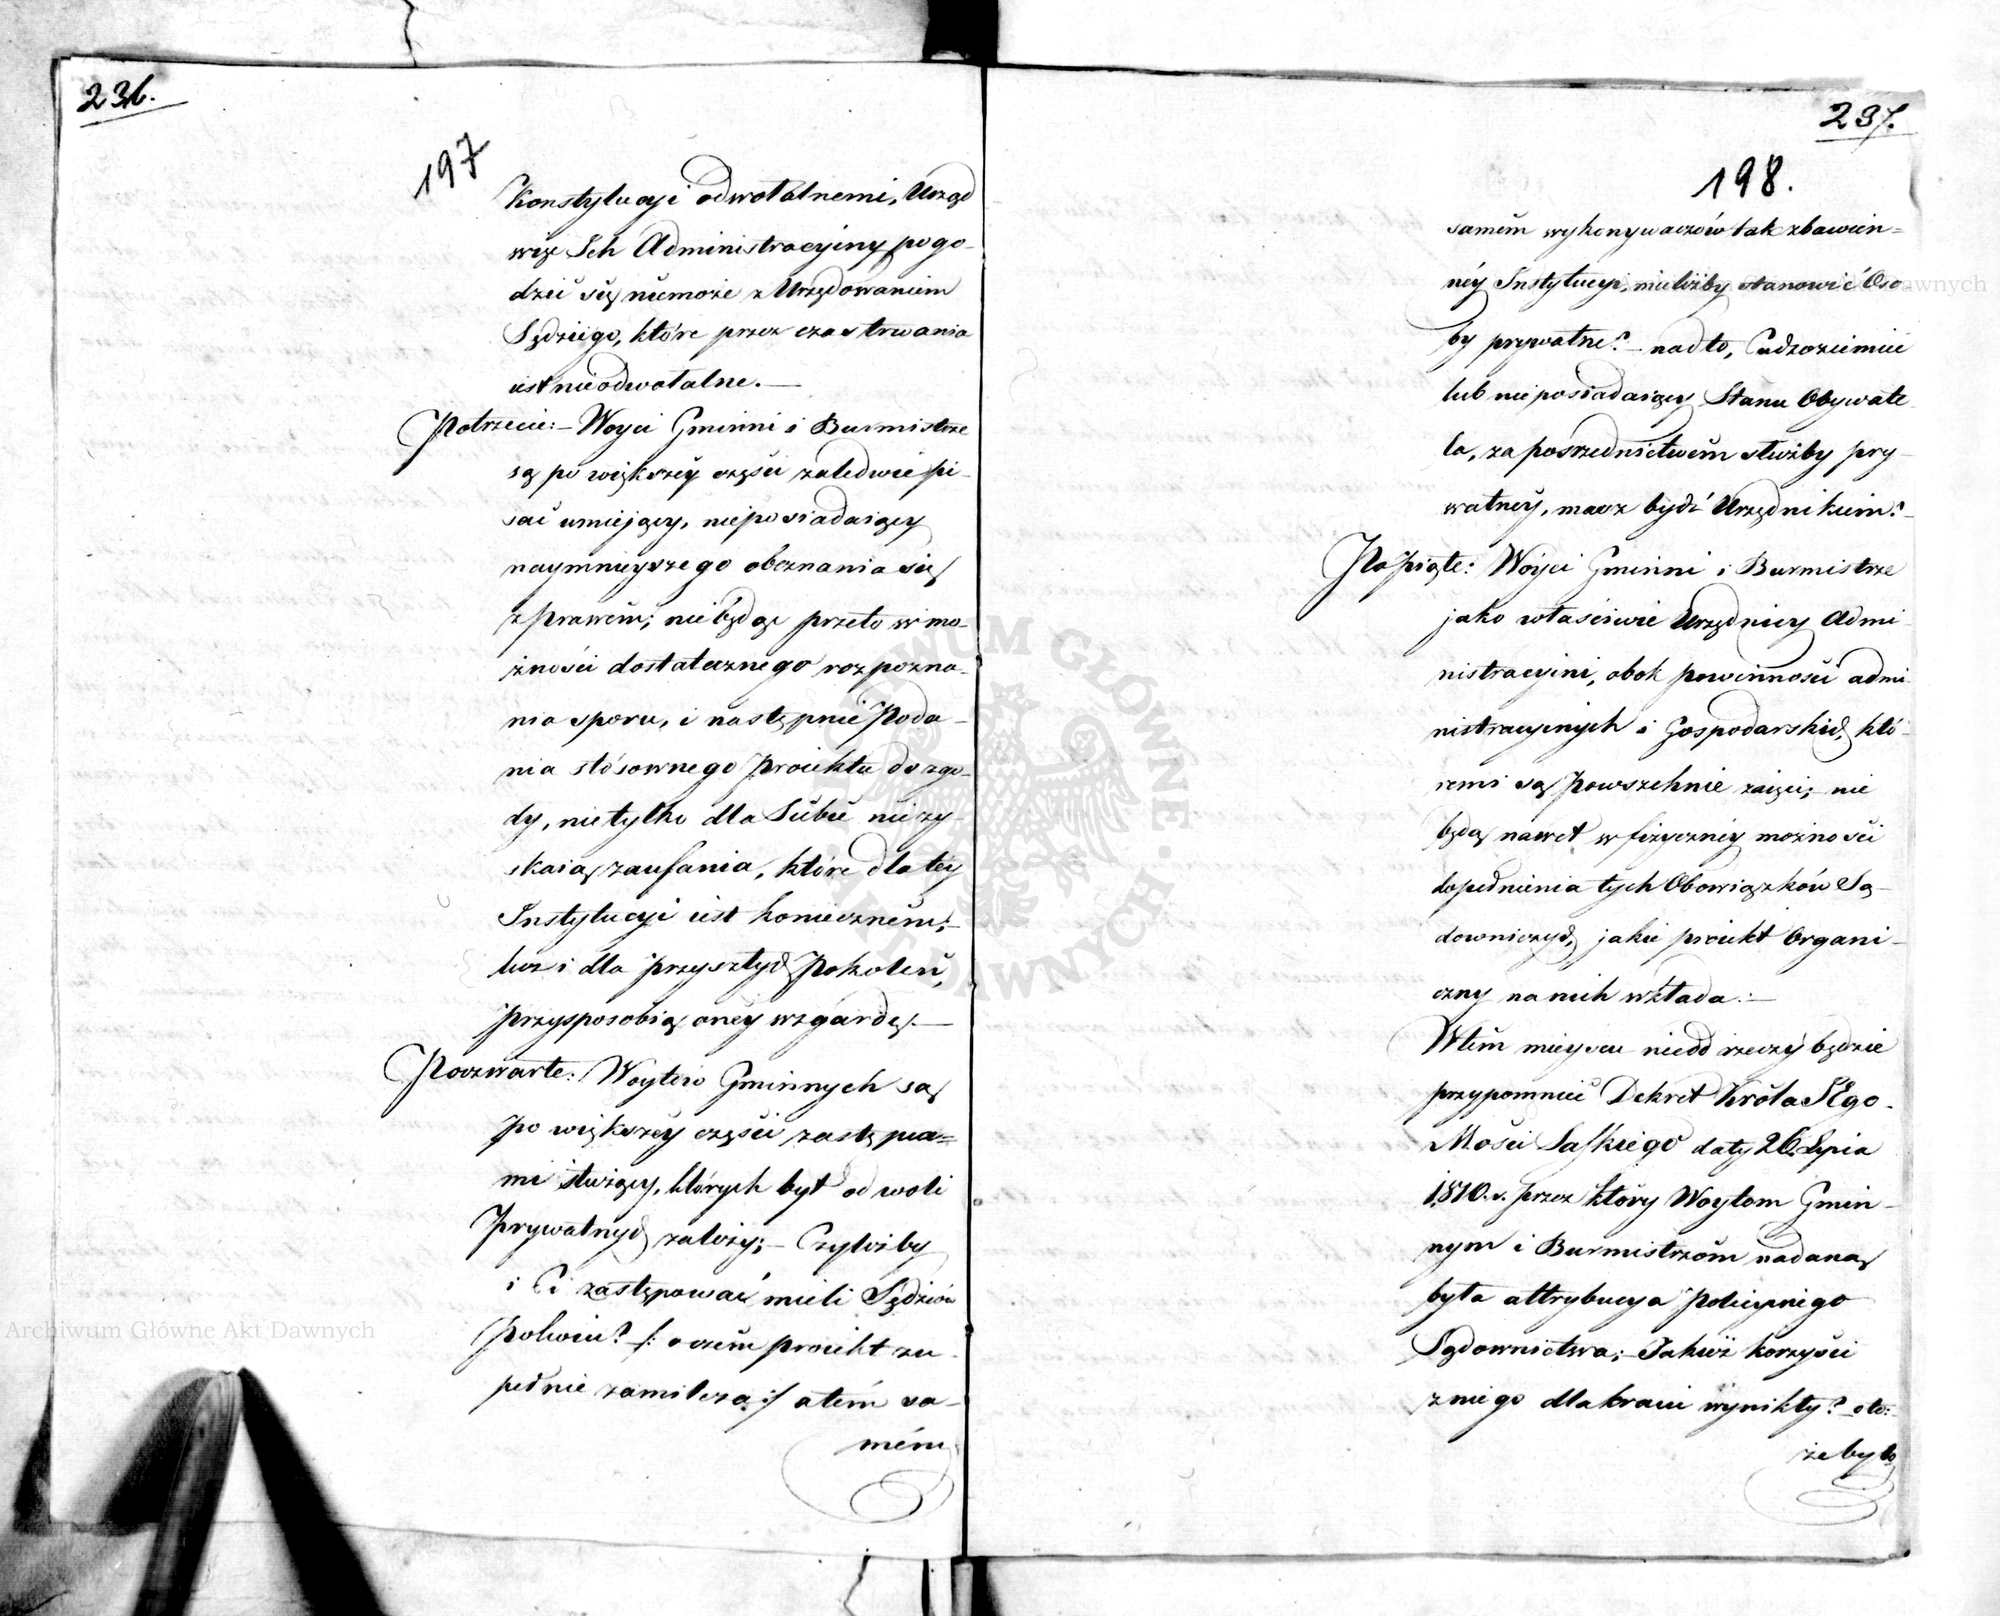 236.
197
Konstytucyi odwołalnemi, Urząd
więc Ich Administracyiny pogo-
dzić się niemoże z Urzędowaniem
Sędziego, które przez czas trwania
iest nieodwołalne.—
Potrzecie:— Woyci Gminni i Burmistrze
są po większey części zaledwie pi-
sać umiejący, nieposiadaiący
naymnieyszego obeznania się
z Prawem; nie będąc przeto w mo-
żności dostatecznego rozpozna-
nia sporu, i następnie Poda-
nia stósownego Proiektu do zgo-
dy, nietylko dla Siebie niezy-
skaią zaufania, które dla tey
Instytucyi iest koniecznem;—
lecz i dla przyszłych Pokoleń,
Przysposobią oney wzgardę.—
Poczwarte: Woytów Gminnych są
po większey części zastępca=
mi służący, których byt od woli
Prywatnych zależy;— Czyliżby
i Ci zastępować mieli Sędziów
Pokoiu? /: o czem proiekt zu-
pełnie zamilcza :/ a tém sa-
mém
237.
198.
samem wykonywaczów tak zbawien=
néy Instytucyi, mieliżby stanowić Oso
by prywatne?— nadto, Cudzoziemiec
lub nie posiadaiący Stanu Obywate
la, za posrzednictwem służby pry-
watney, maż bydź Urzędnikiem?—
Popiąte: Woyci Gminni i Burmistrze
jako właściwie Urzędnicy Admi-
nistracyini, obok powinności admi-
nistracyinych i Gospodarskich, któ-
remi są Powszechnie zaięci; nie
będą nawet w fizyczney możności
dopełnienia tych Obowiązków Są-
downiczych, jakie proiekt Organi-
czny na nich wkłada.—
W tem mieyscu nieod rzeczy będzie
przypomnieć Dekret Króla JEgo-
Mości Saskiego daty 26. Lipca
1810. r. przez który Woytom Gmin-
nym i Burmistrzom nadaną
była attrybucya Policyinego
Sądownictwa;— Jakież korzyści
z niego dla kraiu wynikły? oto:
że były
Archiwum Główne Akt Dawnych
ARCHIWUM GŁÓWNE AKT DAWNYCH